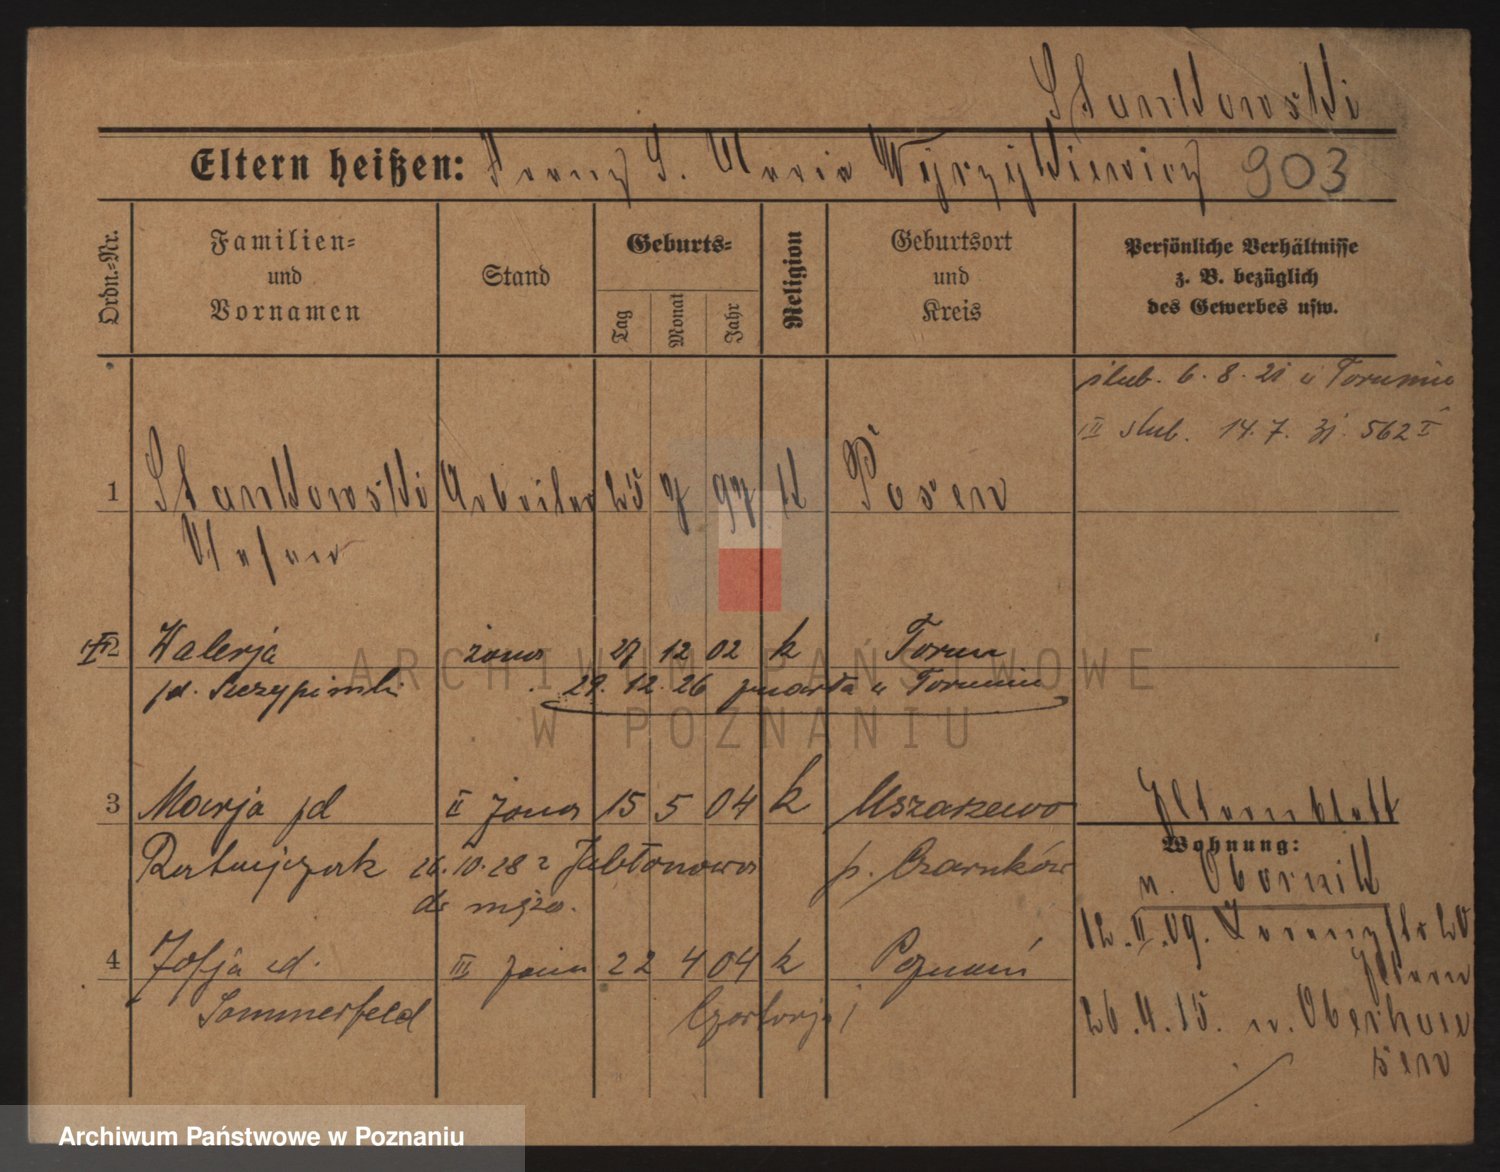 Stankowski
Eltern heißen: Franz S. Maria Wyrzykiewicz 903
Ordn.-Nr.
Familien-
und
Vornamen
Stand
Geburts-
Tag
Monat
Jahr
Religion
Geburtsort
und
Kreis
Persönliche Verhältnisse
z. B. bezüglich
des Gewerbes usw.
ślub. 6. 8. 21 w Toruniu
III ślub. 14. 7. 31. 562 I
1 Stankowski Arbeiter 25 7 97 k Posen
Stefan
2 Walerja żona 27 12 02 k Toruń
29. 12. 26 zmarła w Toruniu
3 Marja zd II żona 15 5 04 k
Ratajczak 26. 10. 28 z Jabłonowa p. Czarnków
do męża.
4 Zofja zd. III żona 22 4 04 k Poznań
Sommerfeld
Elternblatt
Wohnung:
n. Obornik
12. II. 09. 20
Eltern
26. 4. 15. n. Oberhau
sen
ARCHIWUM PAŃSTWOWE
W POZNANIU
Archiwum Państwowe w Poznaniu